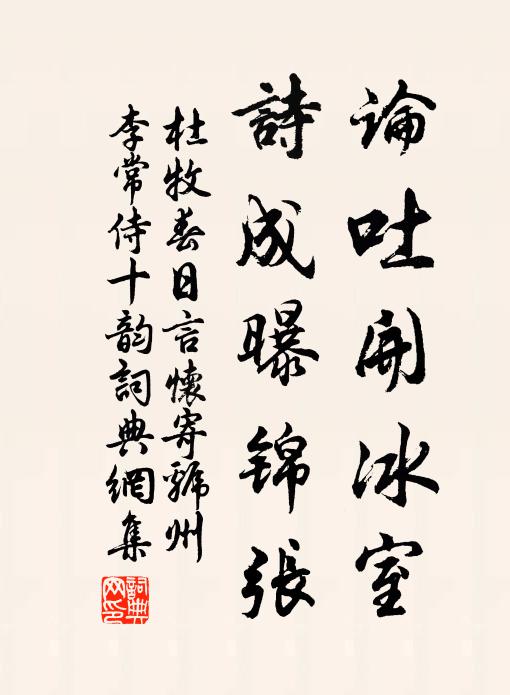 論吐開冰室
詩成曝錦張
杜牧春日言懷寄虢州
李常侍十韵詞典網集
詞典网印